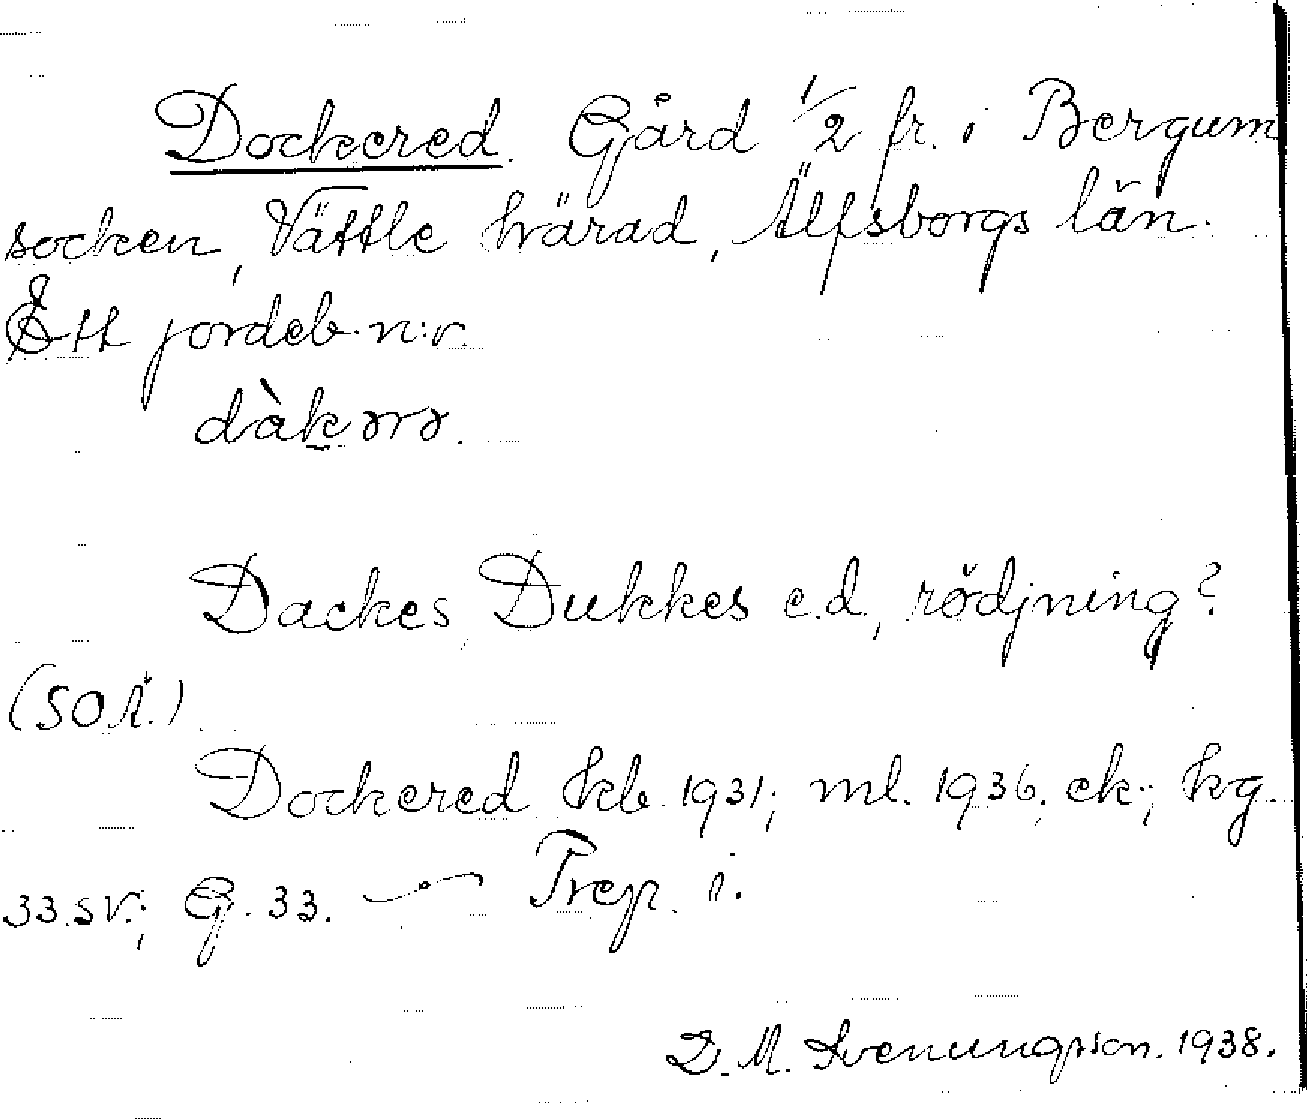 Dockered. Gård 1/2 fr. i Bergum
socken, Vättle härad, Älfsborgs län.
Ett jordeb. n:r.
dàkərə.
Dackes, Dukkes e.d, rödjning?
(SOÄ.)
Dockered kb. 1931; ml. 1936, ek; hg.
33.sv.; G. 33. — Prep. i.
D. M. Svenungsson. 1938.